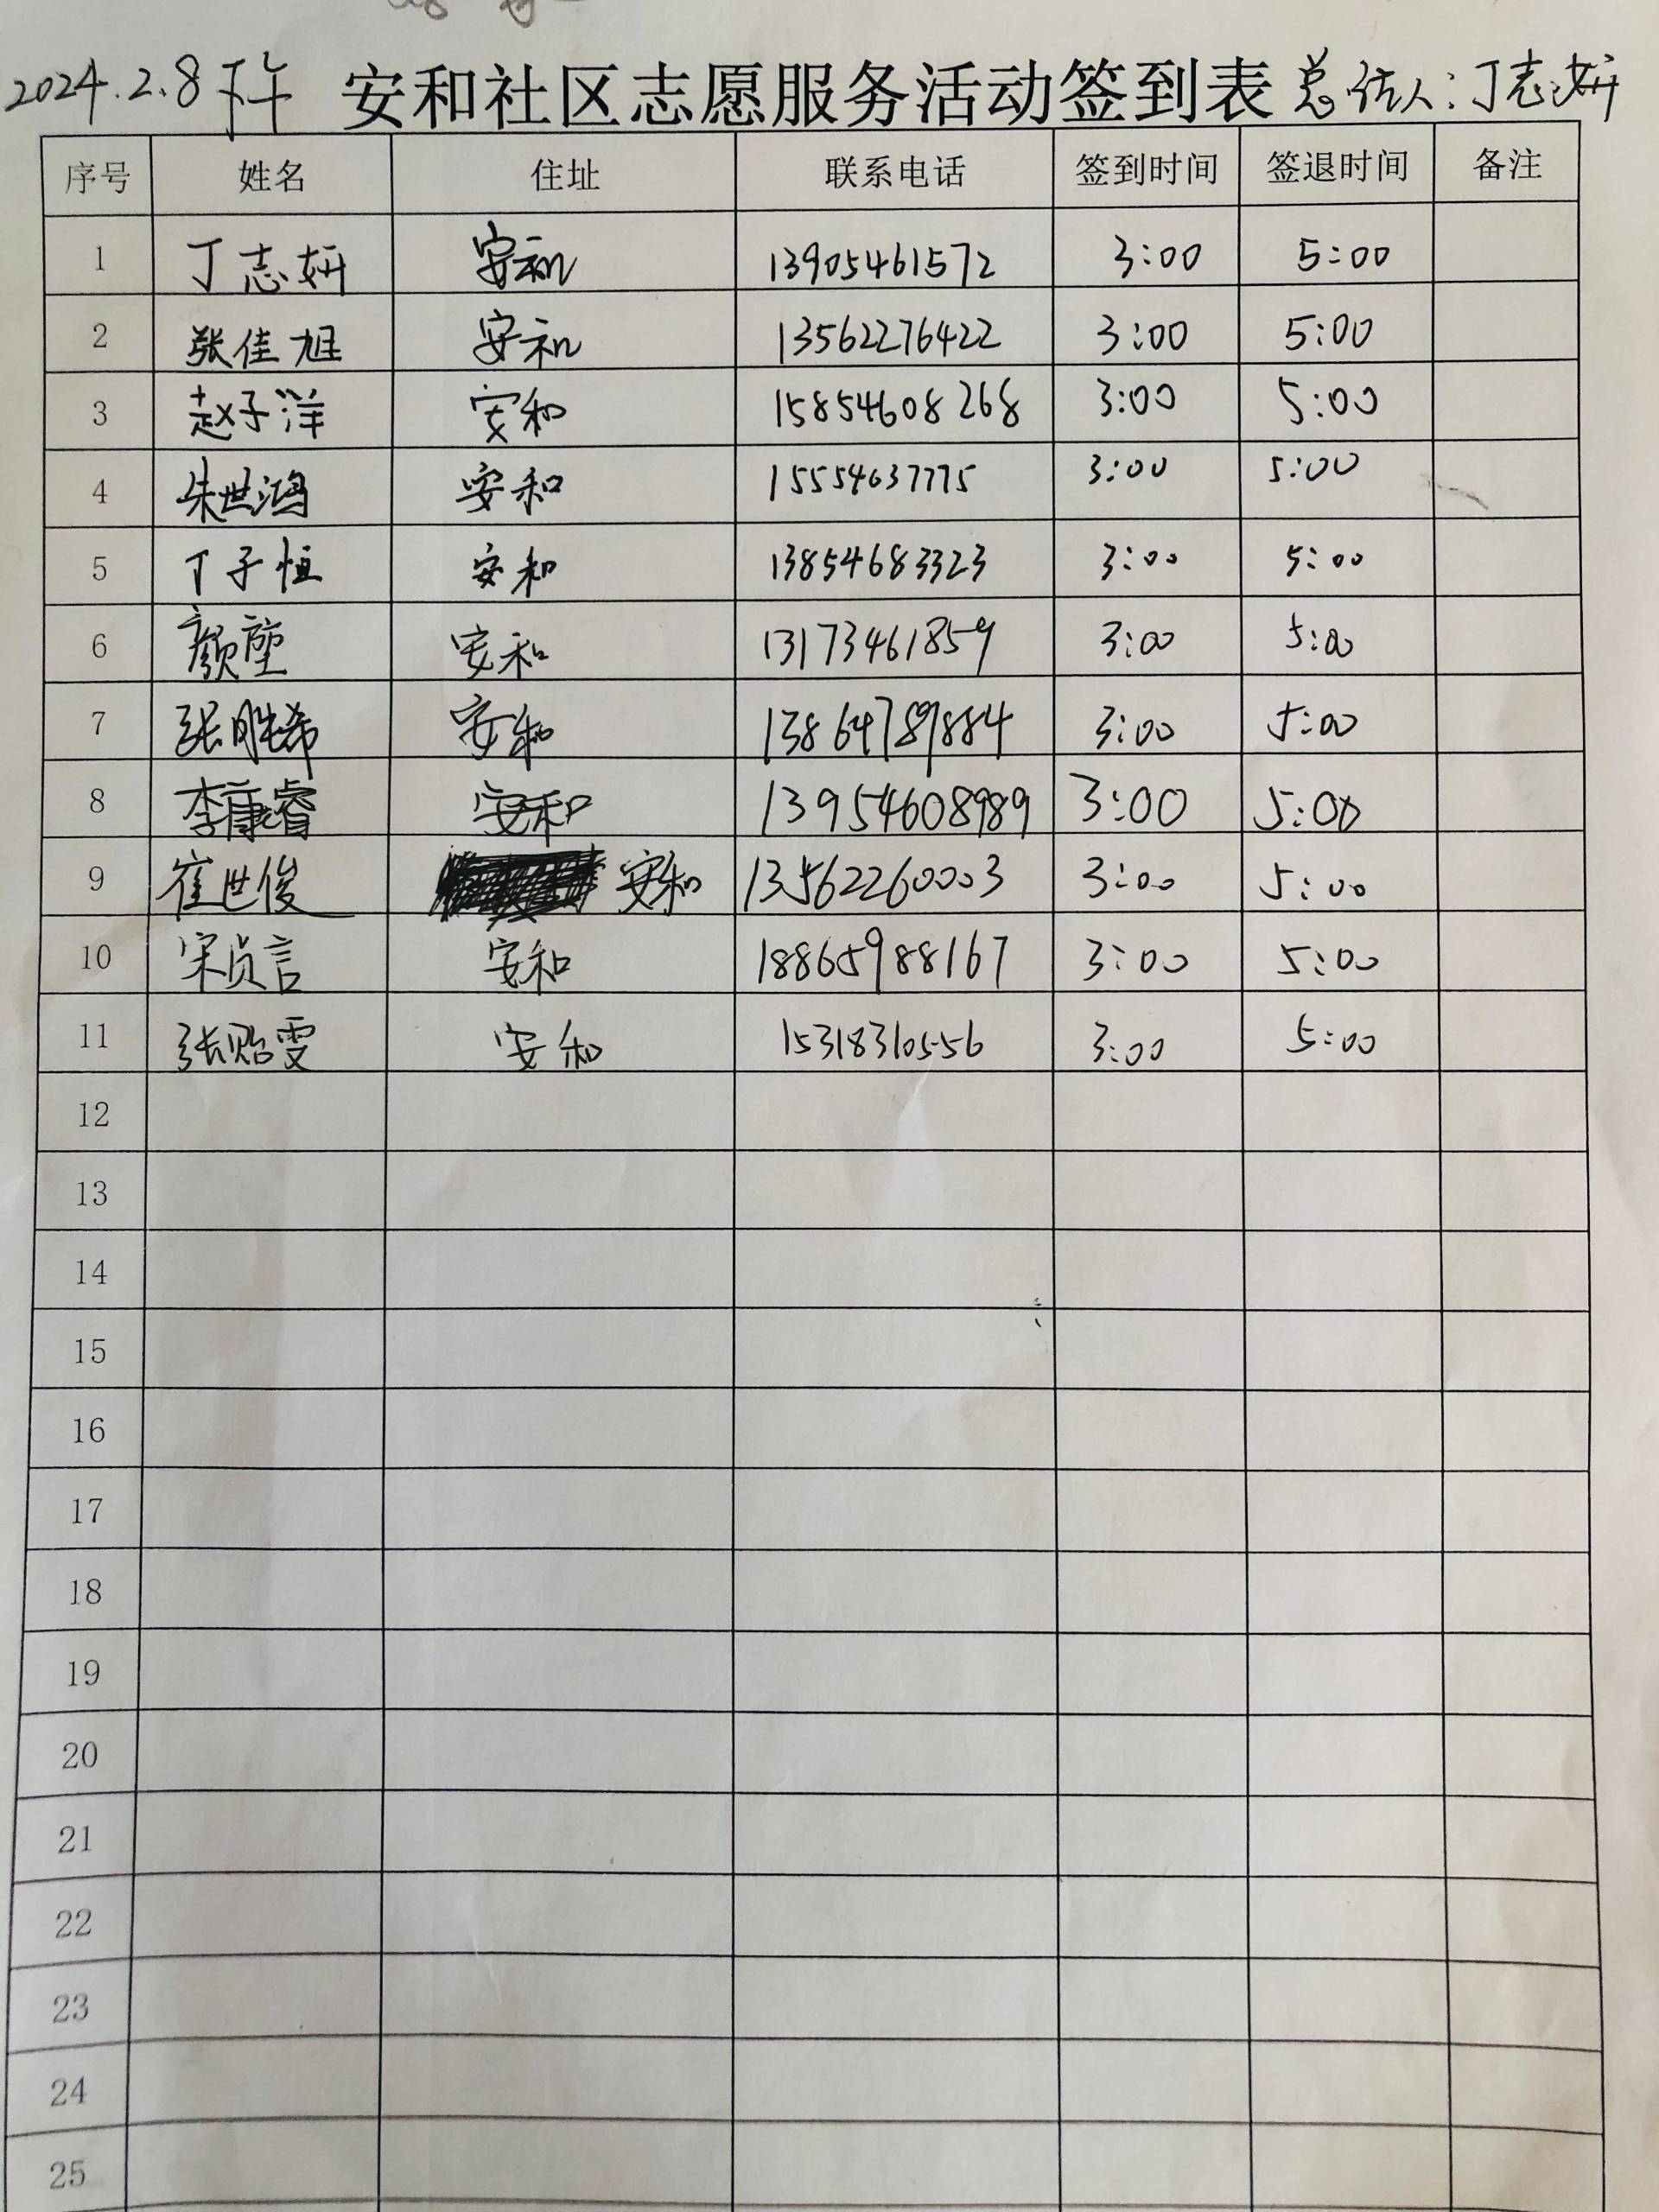 2024.2.8 下午 安和社区志愿服务活动签到表 总结人:丁志妍
序号 姓名 住址 联系电话 签到时间 签退时间 备注
1 丁志妍 安和 13905461572 3:00 5:00
2 张佳旭 安和 13562276422 3:00 5:00
3 赵子洋 安和 15854608268 3:00 5:00
4 朱世鸿 安和 15554637775 3:00 5:00
5 丁子恒 安和 13854683323 3:00 5:00
6 颜 安和 13173461859 3:00 5:00
7 张胜希 安和 13864789884 3:00 5:00
8 李康睿 安和 13954608989 3:00 5:00
9 崔世俊 安和 13562260003 3:00 5:00
10 宋贞言 安和 18865988167 3:00 5:00
11 张贻雯 安和 15318310556 3:00 5:00
12
13
14
15
16
17
18
19
20
21
22
23
24
25